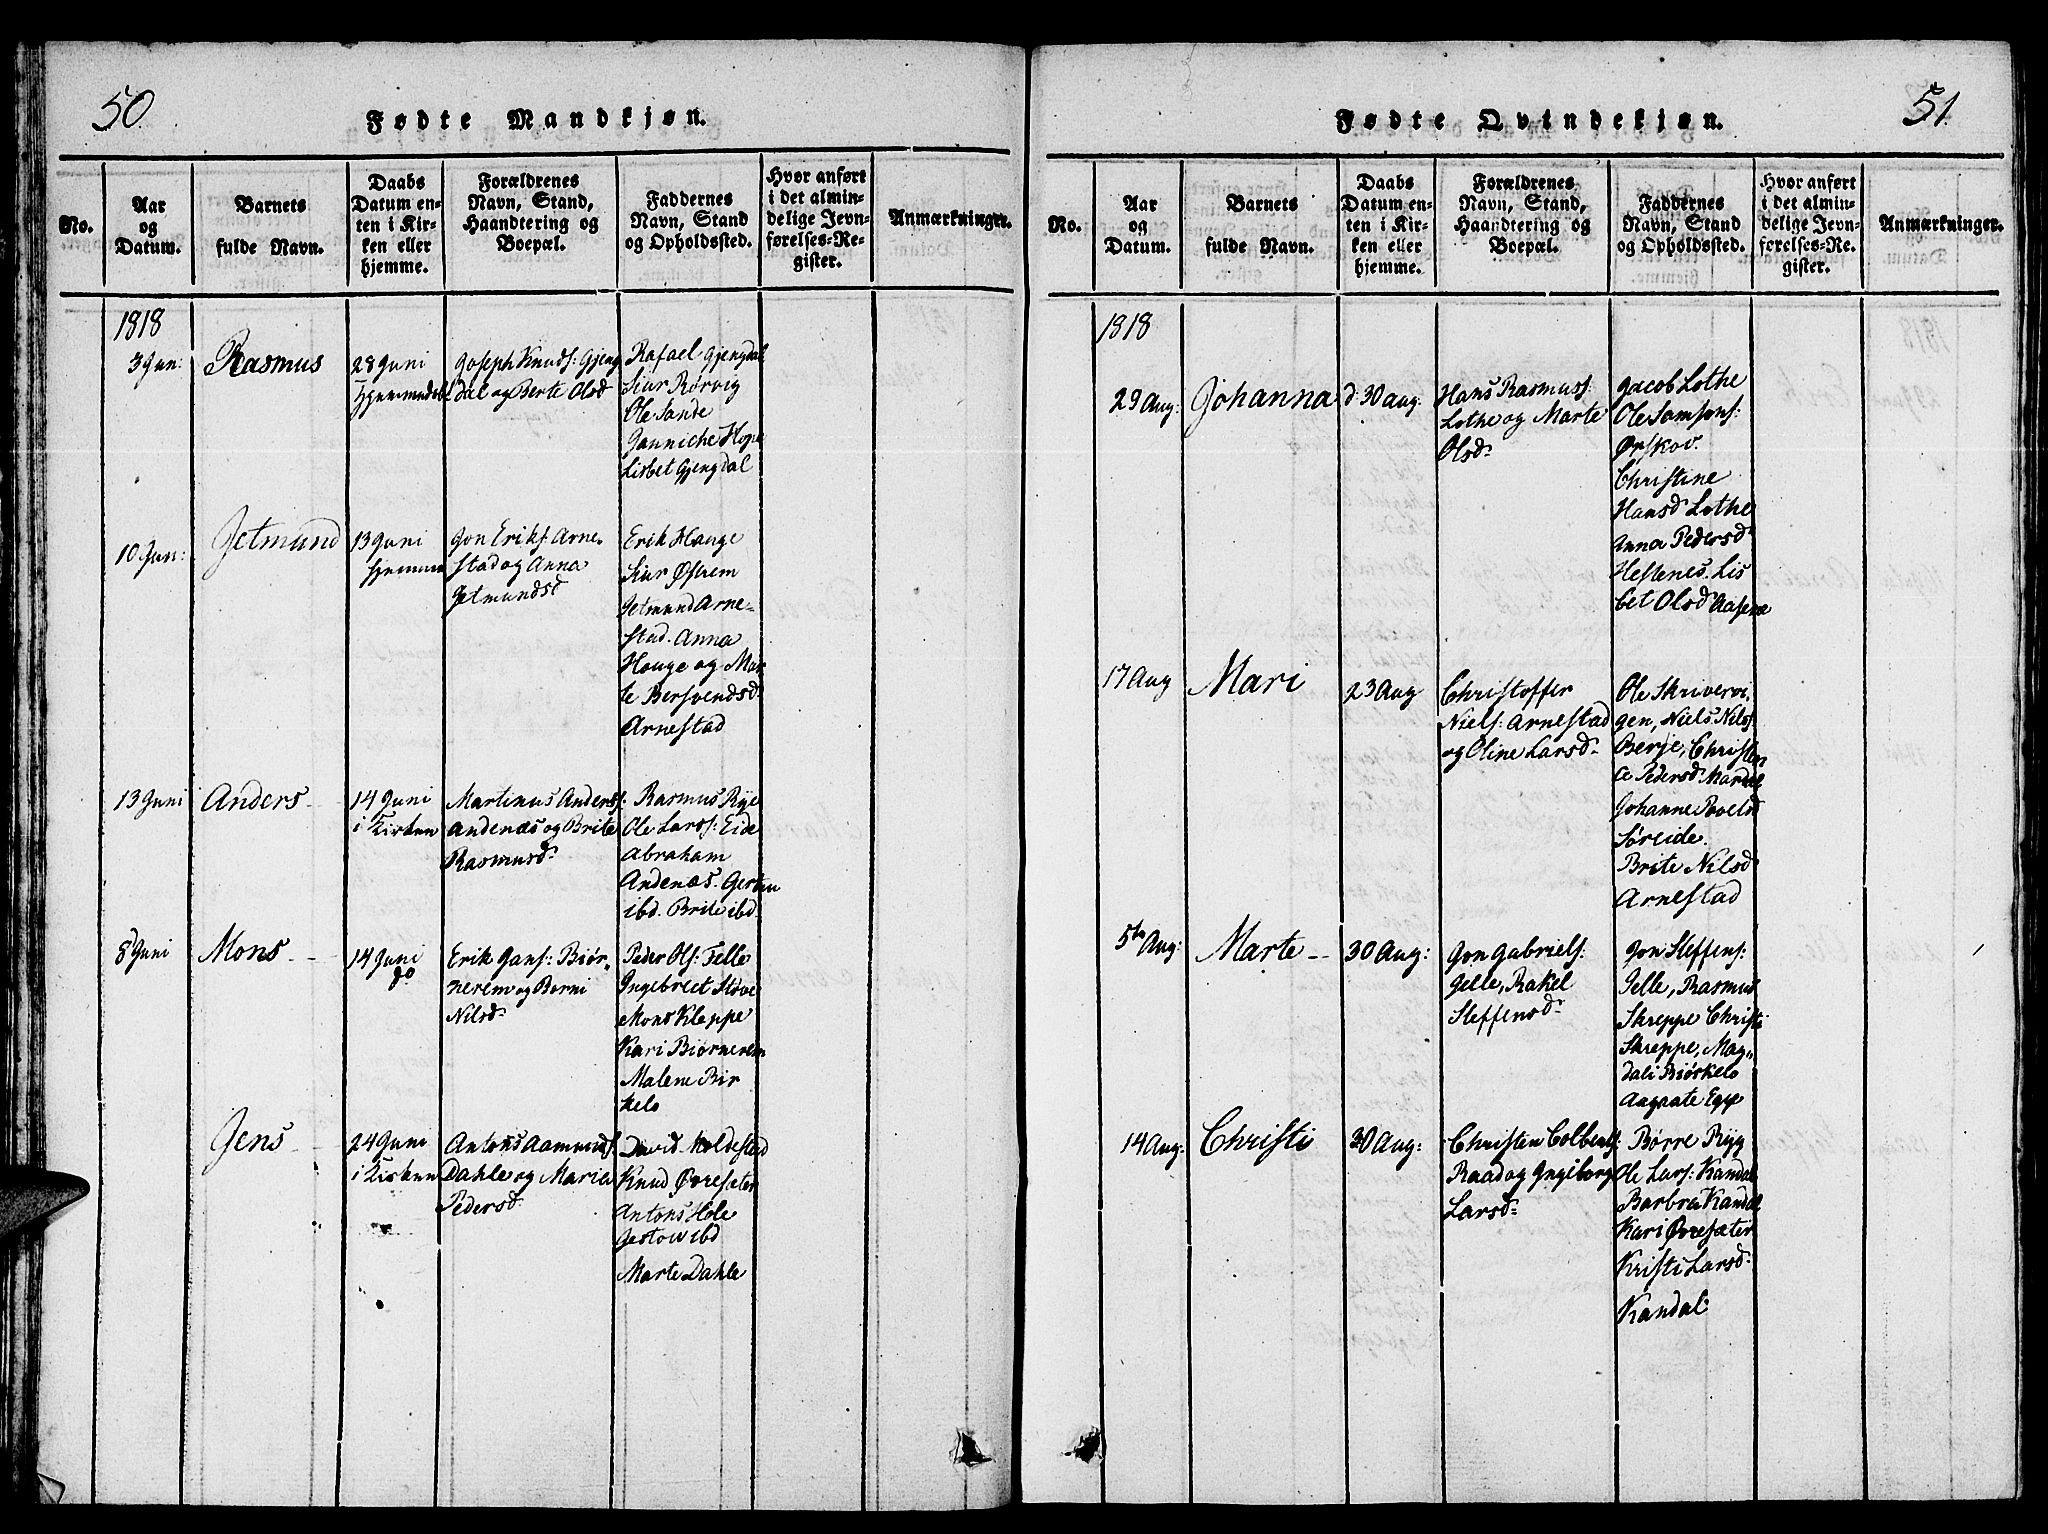 50
Fødte Mandkjøn.
No.
Aar
og
Datum.
Barnets
fulde Navn.
Daabs
Datum en-
ten i Kir-
ken eller
hjemme.
Forældrenes
Navn, Stand,
Haandtering og
Boepæl.
Faddernes
Navn, Stand
og Opholdssted.
Hvor anført
i det almin-
delige Jevn-
førelses-Re-
gister.
Anmærkninger.
1818
3 Jun:
Rasmus
28 Juni
Joseph Knuds: Gjeng
dal og Berte Olsd
Rafael Gjengdal
Siur Rørvig
Ole Sande
Janniche Hope
Lisbet Gjengdal
10 Jun:
Jetmund
13 Juni
hjemme
Jon Eriks Arne-
stad og Anna
Jetmundsd
Erik Hauge
Siur Østrem
Jetmund Arne-
stad. Anna
Houge og Mar
te Bersvendsd
Arnestad
13 Juni
Anders
14 Juni
i Kirken
Martinus Anders:
Andenæs og Brite
Rasmusd
Rasmus Rye
Ole Larss: Eide
Abraham
Andenæs. Gerten
ibd. Brite ibd.
8 Juni
Mons
14 Juni
do
Erik Jans: Biør-
nerem og Berni
Nilsd
Peder Ols: Felle
Ingebret Støve
Mons Kleppe
Kari Biørnerem
Malene Bir
kelo
Jens
24 Juni
i Kirken
Antons Aamunds:
Dahle og Maria
Pedersd
David Moldestad
Knud Øvresæter
Antons Hole
ibd
Marte Dahle
51
Fødte Qvindekjøn.
No.
Aar
og
Datum.
Barnets
fulde Navn.
Daabs
Datum en-
ten i Kir-
ken eller
hjemme.
Forældrenes
Navn, Stand,
Haandtering og
Boepæl.
Faddernes
Navn, Stand
og Opholdssted.
Hvor anført
i det almin-
delige Jevn-
førelses-Re-
gister.
Anmærkninger.
1818
29 Aug:
Johanna
d: 30 aug:
Hans Rasmuss:
Lothe og Marte
Olsd
Jacob Lothe
Ole Samsons:
Ørskov.
Christine
Hansd Lothe
Anna Pedersd
Hestenes. Lis
bet Olsd Aasene
17 Aug
Mari
23 Aug
Christoffer
Niels: Arnestad
og Oline Larsd
Ole Skrivervi
gen, Niels Nils:
Berje, Christen
a Pedersd Mardal
Johanne Povelsd
Søreide.
Brite Nilsd
Arnestad
5te Aug:
Marte
30 Aug:
Jon Gabriels:
Gelle, Rakel
Steffensd
Jon Steffens:
Jelle, Rasmus
Skreppe Christi
Skreppe, Mag-
dali Biørkelo
Augaate Egge
14 Aug:
Christi
30 Aug:
Christen Colbens:
Raad og Ingeborg
Larsd
Børre Ryg
Ole Lars: Kandal
Barbra Kandal
Kari Øvresæter
Kristi Larsd
Kandal